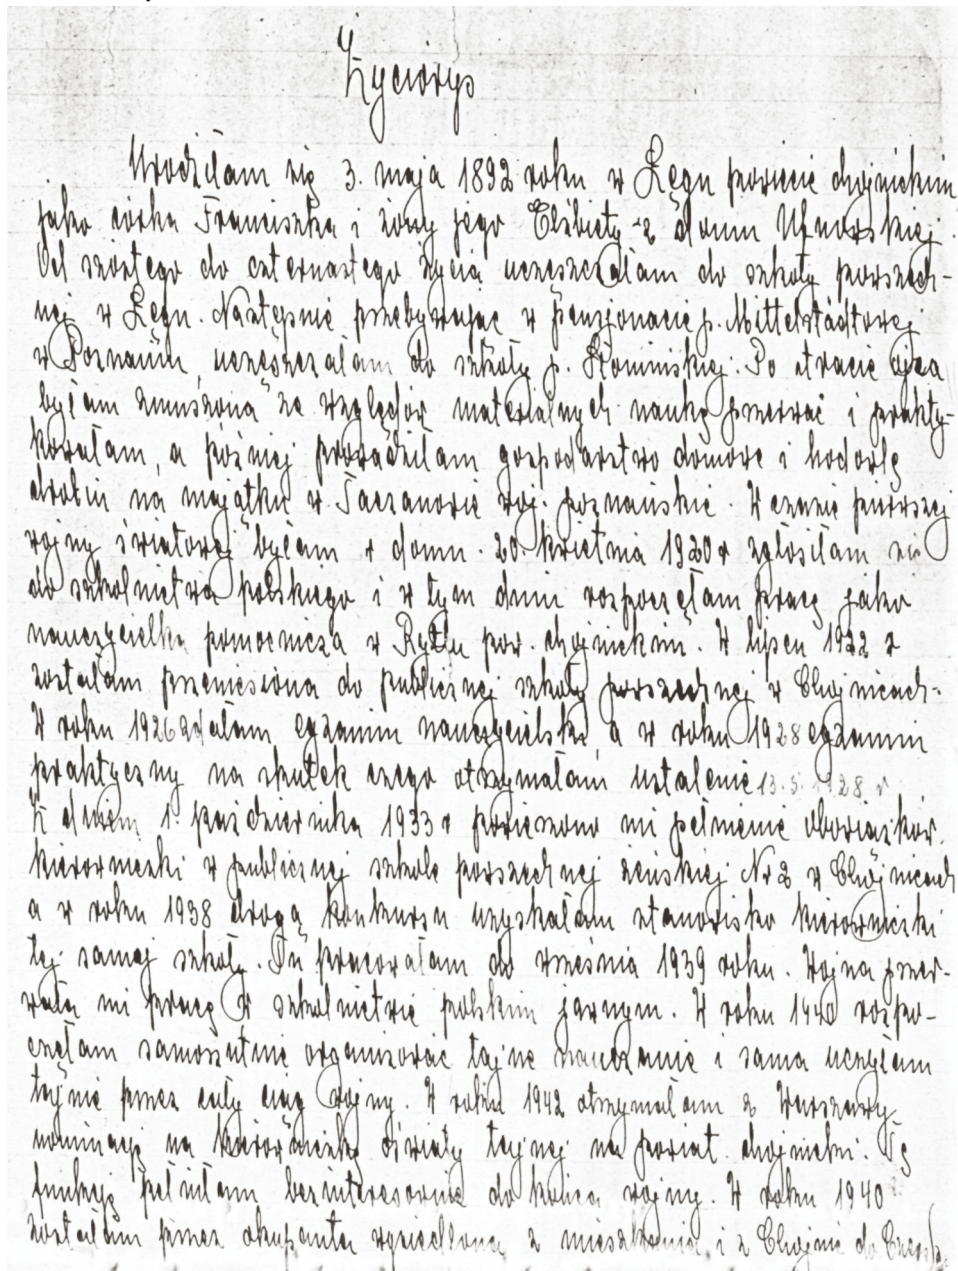 Życiorys
Urodziłam się 3. maja 1892 roku w Łęgu powiecie chojnickim
jako córka Franciszka i żony jego Elżbiety z domu
Od szóstego do czternastego życia uczęszczałam do szkoły powszech-
nej w Łęgu. Następnie przebywając w pensjonacie p. Mittelstädtowej
w Poznaniu, uczęszczałam do szkoły p. Słomińskiej. Po stracie ojca
byłam zmuszona ze względów materialnych naukę przerwać i prakty-
kowałam, a później prowadziłam gospodarstwo domowe i hodowlę
drobiu na majątku w Taczanowie woj. poznańskie. W czasie pierwszej
wojny światowej byłam w domu. 20 kwietnia 1920 r zgłosiłam się
do szkolnictwa polskiego i w tym dniu rozpoczęłam pracę jako
nauczycielka pomocnicza w Rytlu pow. chojnickim. W lipcu 1922 r
zostałam przeniesiona do publicznej szkoły powszechnej w Chojnicach.
W roku 1926 zdałam egzamin nauczycielski, a w roku 1928 egzamin
praktyczny na skutek czego otrzymałam ustalenie 13.5.1928 r
Z dniem 1. października 1933 r powierzono mi pełnienie obowiązków
kierowniczki w publicznej szkole powszechnej żeńskiej Nr 2 w Chojnicach
a w roku 1938 drogą konkursu uzyskałam stanowisko kierowniczki
tej samej szkoły. Tu pracowałam do września 1939 roku. Wojna przer-
wała mi pracę w szkolnictwie polskim jawnym. W roku 1940 rozpo-
częłam samorzutnie organizować tajne nauczanie i sama uczyłam
tajnie przez cały ciąg wojny. W roku 1942 otrzymałam z Warszawy
nominację na kierowniczkę oświaty tajnej na powiat chojnicki. Tę
funkcję pełniłam bezinteresownie do końca wojny. W roku 1940
zostałam przez okupanta wysiedlona z mieszkania i z Chojnic do